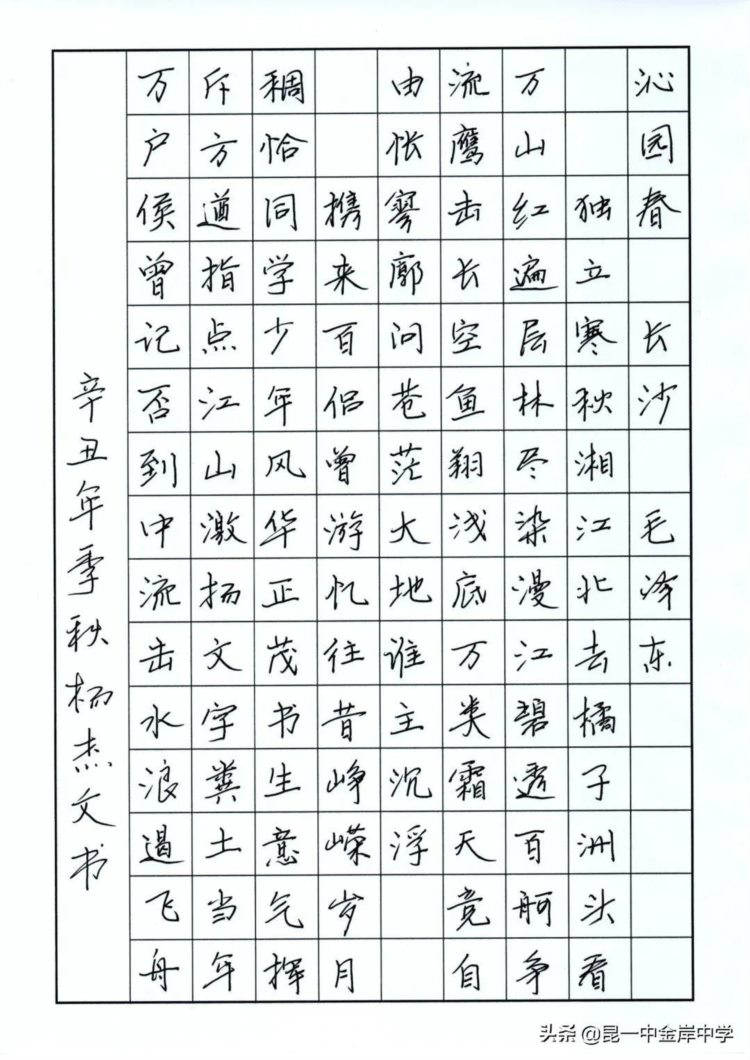 沁园春 长沙 毛泽东
独立寒秋湘江北去橘子洲头看
万山红遍层林尽染漫江碧透百舸争
流鹰击长空鱼翔浅底万类霜天竞自
由怅寥廓问苍茫大地谁主沉浮
携来百侣曾游忆往昔峥嵘岁月
稠恰同学少年风华正茂书生意气挥
斥方遒指点江山激扬文字粪土当年
万户侯曾记否到中流击水浪遏飞舟
辛丑年季秋杨杰文书
头条 @昆一中金岸中学